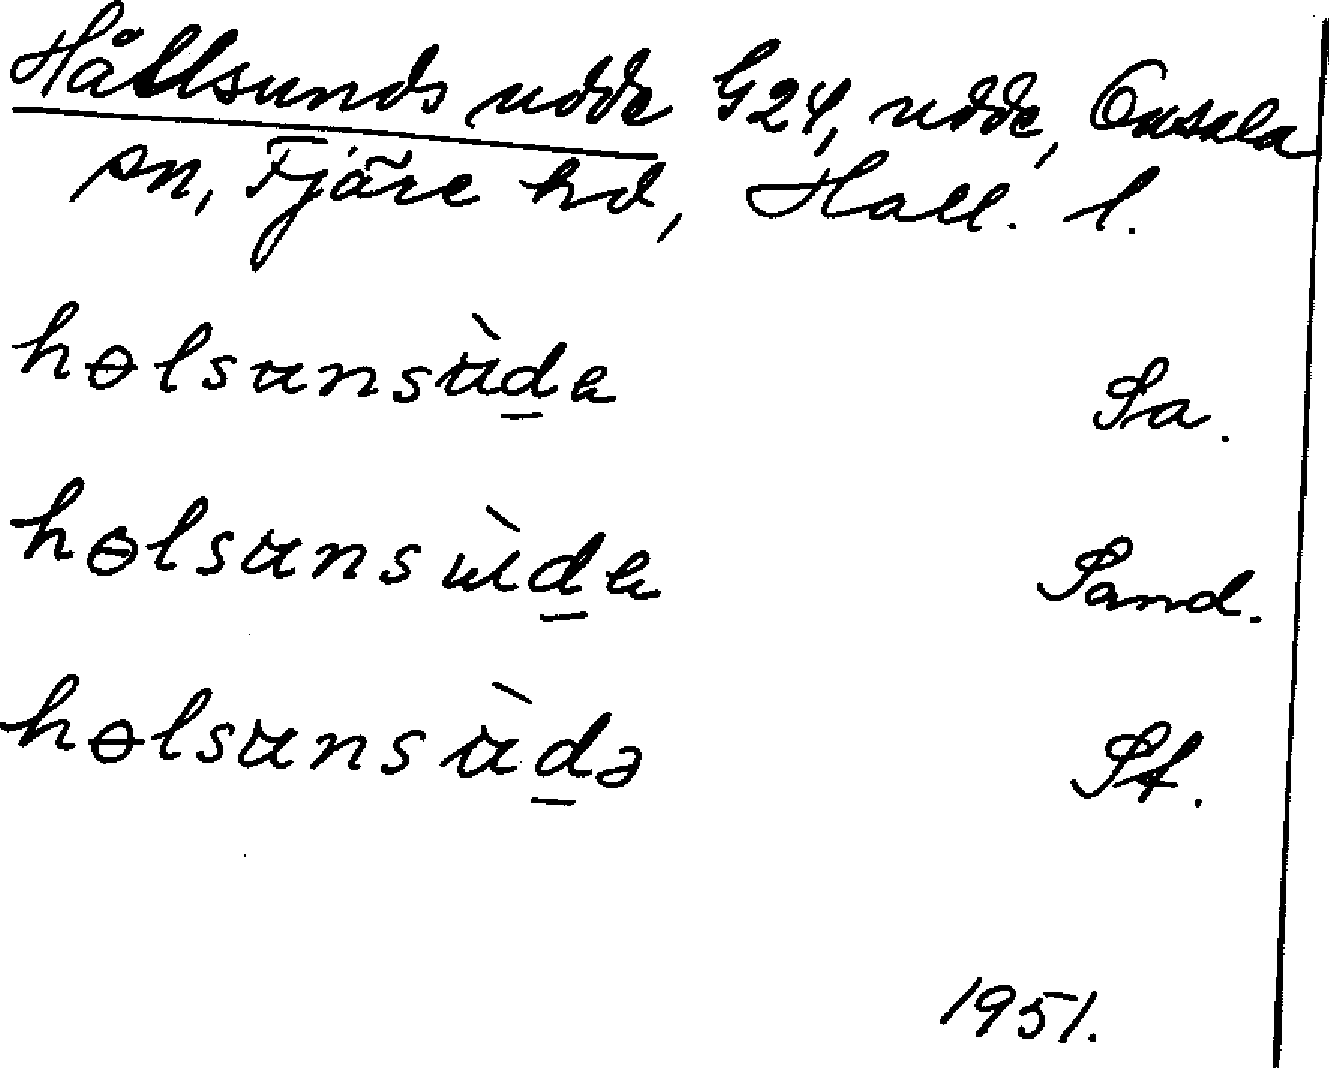 Hållsunds udde G24, udde, Onsala
sn, Fjäre hd, Hall. l.
hɵlsunsùde Sa.
hɵlsunsùde Sand.
hɵlsunsùdə St.
1951.